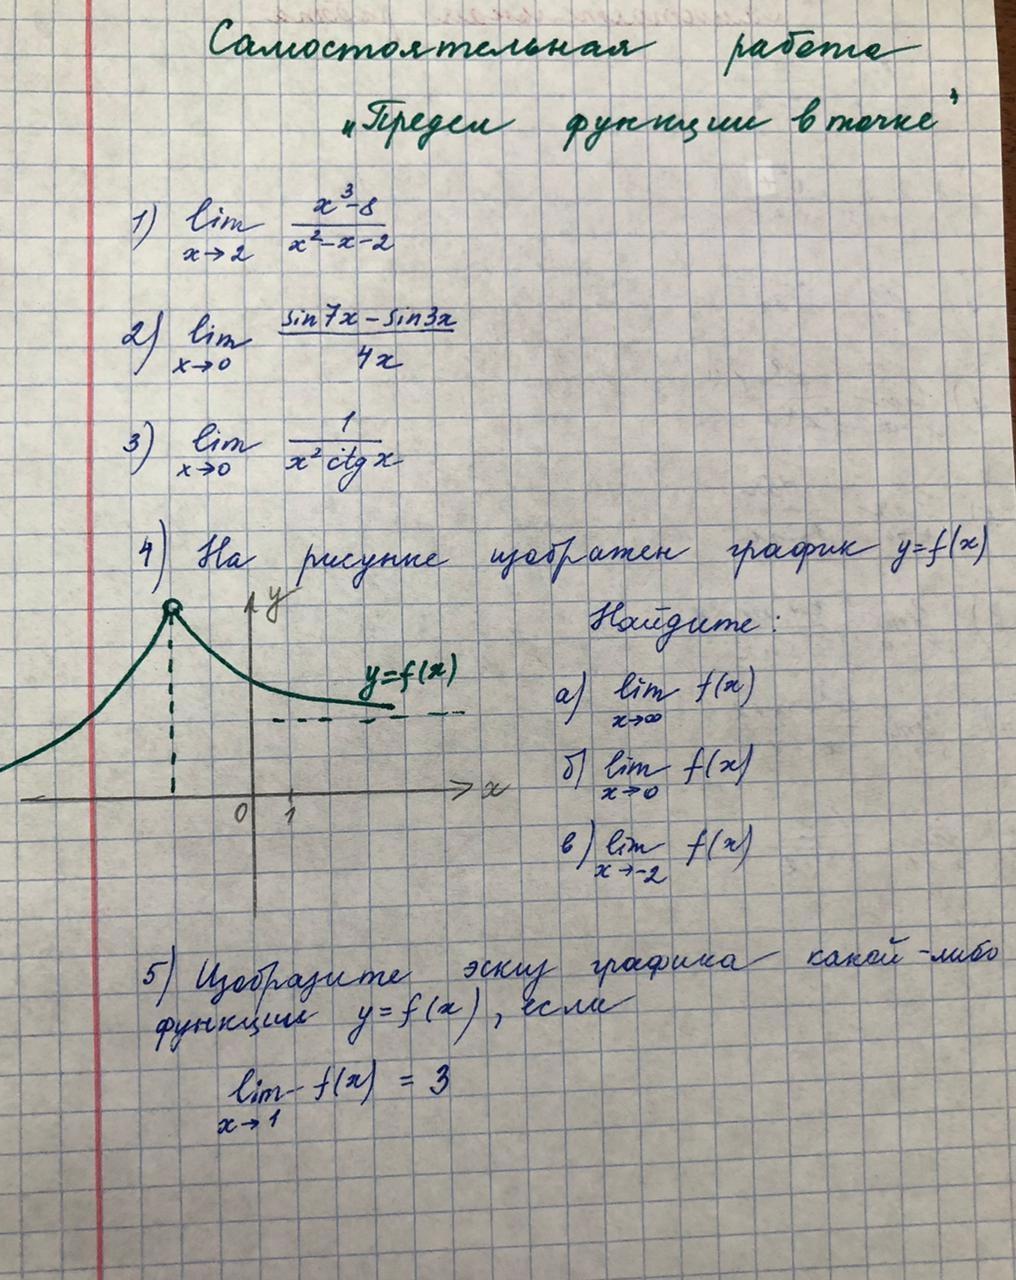 Самостоятельная работа
„Предел функции в точке"
1) lim x→2 (x³-8)/(x²-x-2)
2) lim x→0 (sin7x-sin3x)/(4x)
3) lim x→0 1/(x² ctg x)
4) На рисунке изображен график y=f(x)
y
y=f(x)
0 1 x
Найдите:
а) lim x→∞ f(x)
б) lim x→0 f(x)
в) lim x→-2 f(x)
5) Изобразите эскиз графика какой-либо
функции y=f(x), если
lim x→1 f(x) = 3